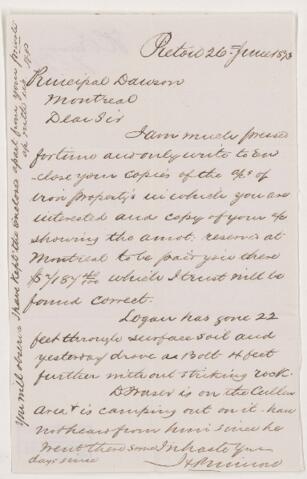 Pictou 26th June 1873
Principal Dawson
Montreal
Dear Sir
I am much pressed
for time and only write to En-
close your copies of the a/cs of
Iron Property's in which you are
interested and copy of your a/c
showing the amot. reserved at
Montreal to be paid you there
which I trust will be
found correct.
Logan has gone 22
feet through surface soil and
yesterday drove a Bolt 4 feet
further without striking rock.
D Fraser is on the Cullen
area & is camping out on it - have
not heard from him since he
went there some In haste Yours
days since
You will observe I have kept the Enclose apart from your private